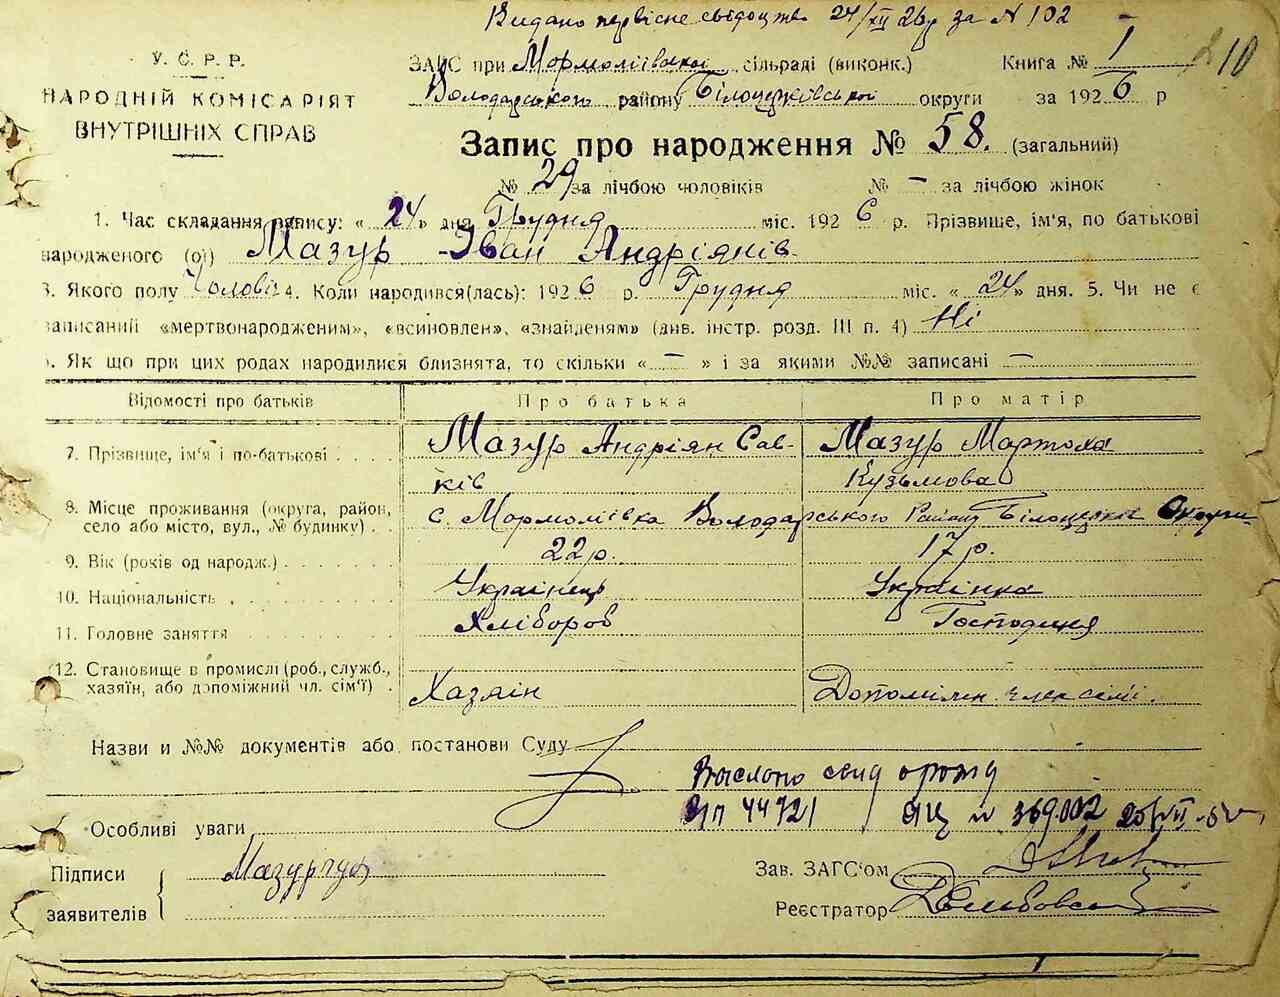 Видано первісне свідоцтво 24/XII 26 р за № 102
У. С. Р. Р.
НАРОДНІЙ КОМІСАРІЯТ
ВНУТРІШНІХ СПРАВ
ЗАГС при Мормоліївській сільраді (виконк.) Книга № 1
210
Володарського району Білоцерківської округи за 1926 р
Запис про народження № 58. (загальний)
№ 29 за лічбою чоловіків № – за лічбою жінок
1. Час складання запису: «24» дня Грудня міс. 1926 р. Прізвище, ім'я, по батькові
народженого (ої) Мазур Іван Андріянів
3. Якого полу Чолові 4. Коли народився(лась): 1926 р. Грудня міс. «24» дня. 5. Чи не є
записаний «мертвонародженим», «всиновлен», «знайденям» (див. інстр. розд. III п. 4) Ні
6. Як що при цих родах народилися близнята, то скільки «–» і за якими №№ записані –
Відомості про батьків Про батька Про матір
7. Прізвище, ім'я і по-батькові Мазур Андріян Сав- Мазур Мартоха
ків Кузьмова
8. Місце проживання (округа, район, село або місто, вул., № будинку) с. Мормоліївка Володарського Району Білоцерків Округи
9. Вік (років од народж.) 22 р. 17 р.
10. Національність Українець Українка
11. Головне заняття Хлібороб Господиня
12. Становище в промислі (роб., служб.,
хазяїн, або допоміжний чл. сім'ї) Хазяін Допоміжн. член сімї.
Назви и №№ документів або постанови Суду
Выслано свид о рожд
44721 ЯЦ № 369002
Особливі уваги
Підписи
заявителів
Мазур
Зав. ЗАГС'ом
Реєстратор